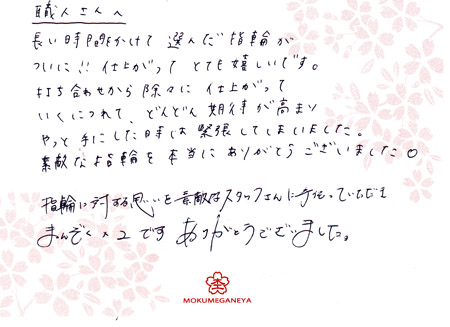 職人さんへ
長い時間をかけて選んだ指輪が
ついに!! 仕上がってとても嬉しいです。
打ち合わせから除々に仕上がって
いくにつれて、どんどん期待が高まり
やっと手にした時は緊張してしまいました。
素敵な指輪を本当にありがとうございました。
指輪に対する思いを素敵なスタッフさんに手伝っていただき
まんぞく×2です ありがとうございました。
MOKUMEGANEYA